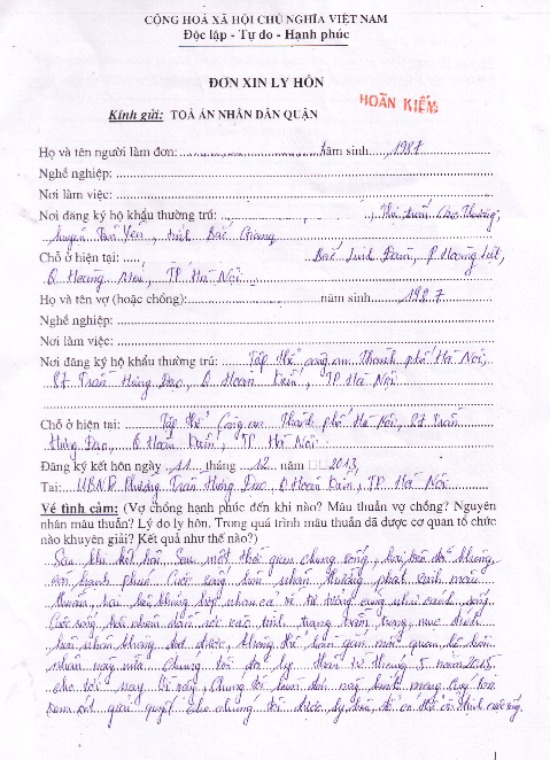 CỘNG HOÀ XÃ HỘI CHỦ NGHĨA VIỆT NAM
Độc lập - Tự do - Hạnh phúc
ĐƠN XIN LY HÔN
HOÀN KIẾM
Kính gửi: TOÀ ÁN NHÂN DÂN QUẬN
Họ và tên người làm đơn: năm sinh 1987
Nghề nghiệp:
Nơi làm việc:
Nơi đăng ký hộ khẩu thường trú: Thị trấn Cao Thượng,
huyện Tân Yên, tỉnh Bắc Giang
Chỗ ở hiện tại: Bắc Linh Đàm, P Hoàng Liệt,
Q Hoàng Mai, TP Hà Nội
Họ và tên vợ (hoặc chồng): năm sinh 1987
Nghề nghiệp:
Nơi làm việc:
Nơi đăng ký hộ khẩu thường trú: Tập thể công an Thành phố Hà Nội,
Trần Hưng Đạo, Q Hoàn Kiếm, TP Hà Nội
Chỗ ở hiện tại: Tập thể Công an Thành phố Hà Nội, Trần
Hưng Đạo, Q Hoàn Kiếm, TP Hà Nội
Đăng ký kết hôn ngày 11 tháng 12 năm 2013
Tại: UBND Phường Trần Hưng Đạo, Q Hoàn Kiếm, TP. Hà Nội
Về tình cảm: (Vợ chồng hạnh phúc đến khi nào? Mâu thuẫn vợ chồng? Nguyên
nhân mâu thuẫn? Lý do ly hôn. Trong quá trình mâu thuẫn đã được cơ quan tổ chức
nào khuyên giải? Kết quả như thế nào?)
Sau khi kết hôn, sau một thời gian chung sống, hai bên đã không
còn hạnh phúc. Cuộc sống hôn nhân thường phát sinh mâu
thuẫn, hai bên không hợp nhau cả về tư tưởng cũng như cách sống
Cuộc sống hôn nhân tình trạng trầm trọng, mục đích
hôn nhân không đạt được, không thể hàn gắn mối quan hệ hôn
nhân này nữa. Chúng tôi đã ly thân từ tháng 5 năm 2015
cho tới nay. Vì vậy, Chúng tôi đơn này kính mong Quý toà
xem xét giải quyết cho chúng tôi được ly hôn, để có thể ổn định cuộc sống.
1